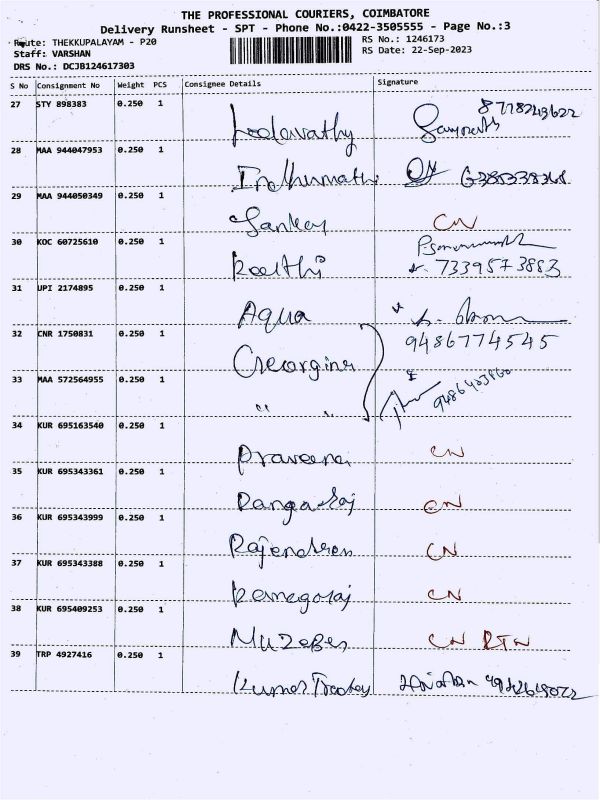 THE PROFESSIONAL COURIERS, COIMBATORE
Delivery Runsheet - SPT - Phone No.:0422-3505555 - Page No.:3
Route: THEKKUPALAYAM - P20
RS No.: 1246173
Staff: VARSHAN
RS Date: 22-Sep-2023
DRS No.: DCJB124617303
S No Consignment No Weight PCS Consignee Details Signature
27 STY 898383 0.250 1
28 MAA 944047953 0.250 1
Indhumathi
29 MAA 944050349 0.250 1
Sankar CN
30 KOC 60725610 0.250 1
Keerthi 7339573883
31 UPI 2174895 0.250 1
Aqua
32 CNR 1750831 0.250 1
Georgina 9486774545
33 MAA 572564955 0.250 1
" "
34 KUR 695163540 0.250 1
Praveena CN
35 KUR 695343361 0.250 1
Rangaraj CN
36 KUR 695343999 0.250 1
Rajendren CN
37 KUR 695343388 0.250 1
CN
38 KUR 695409253 0.250 1
CN RTN
39 TRP 4927416 0.250 1
Kumar